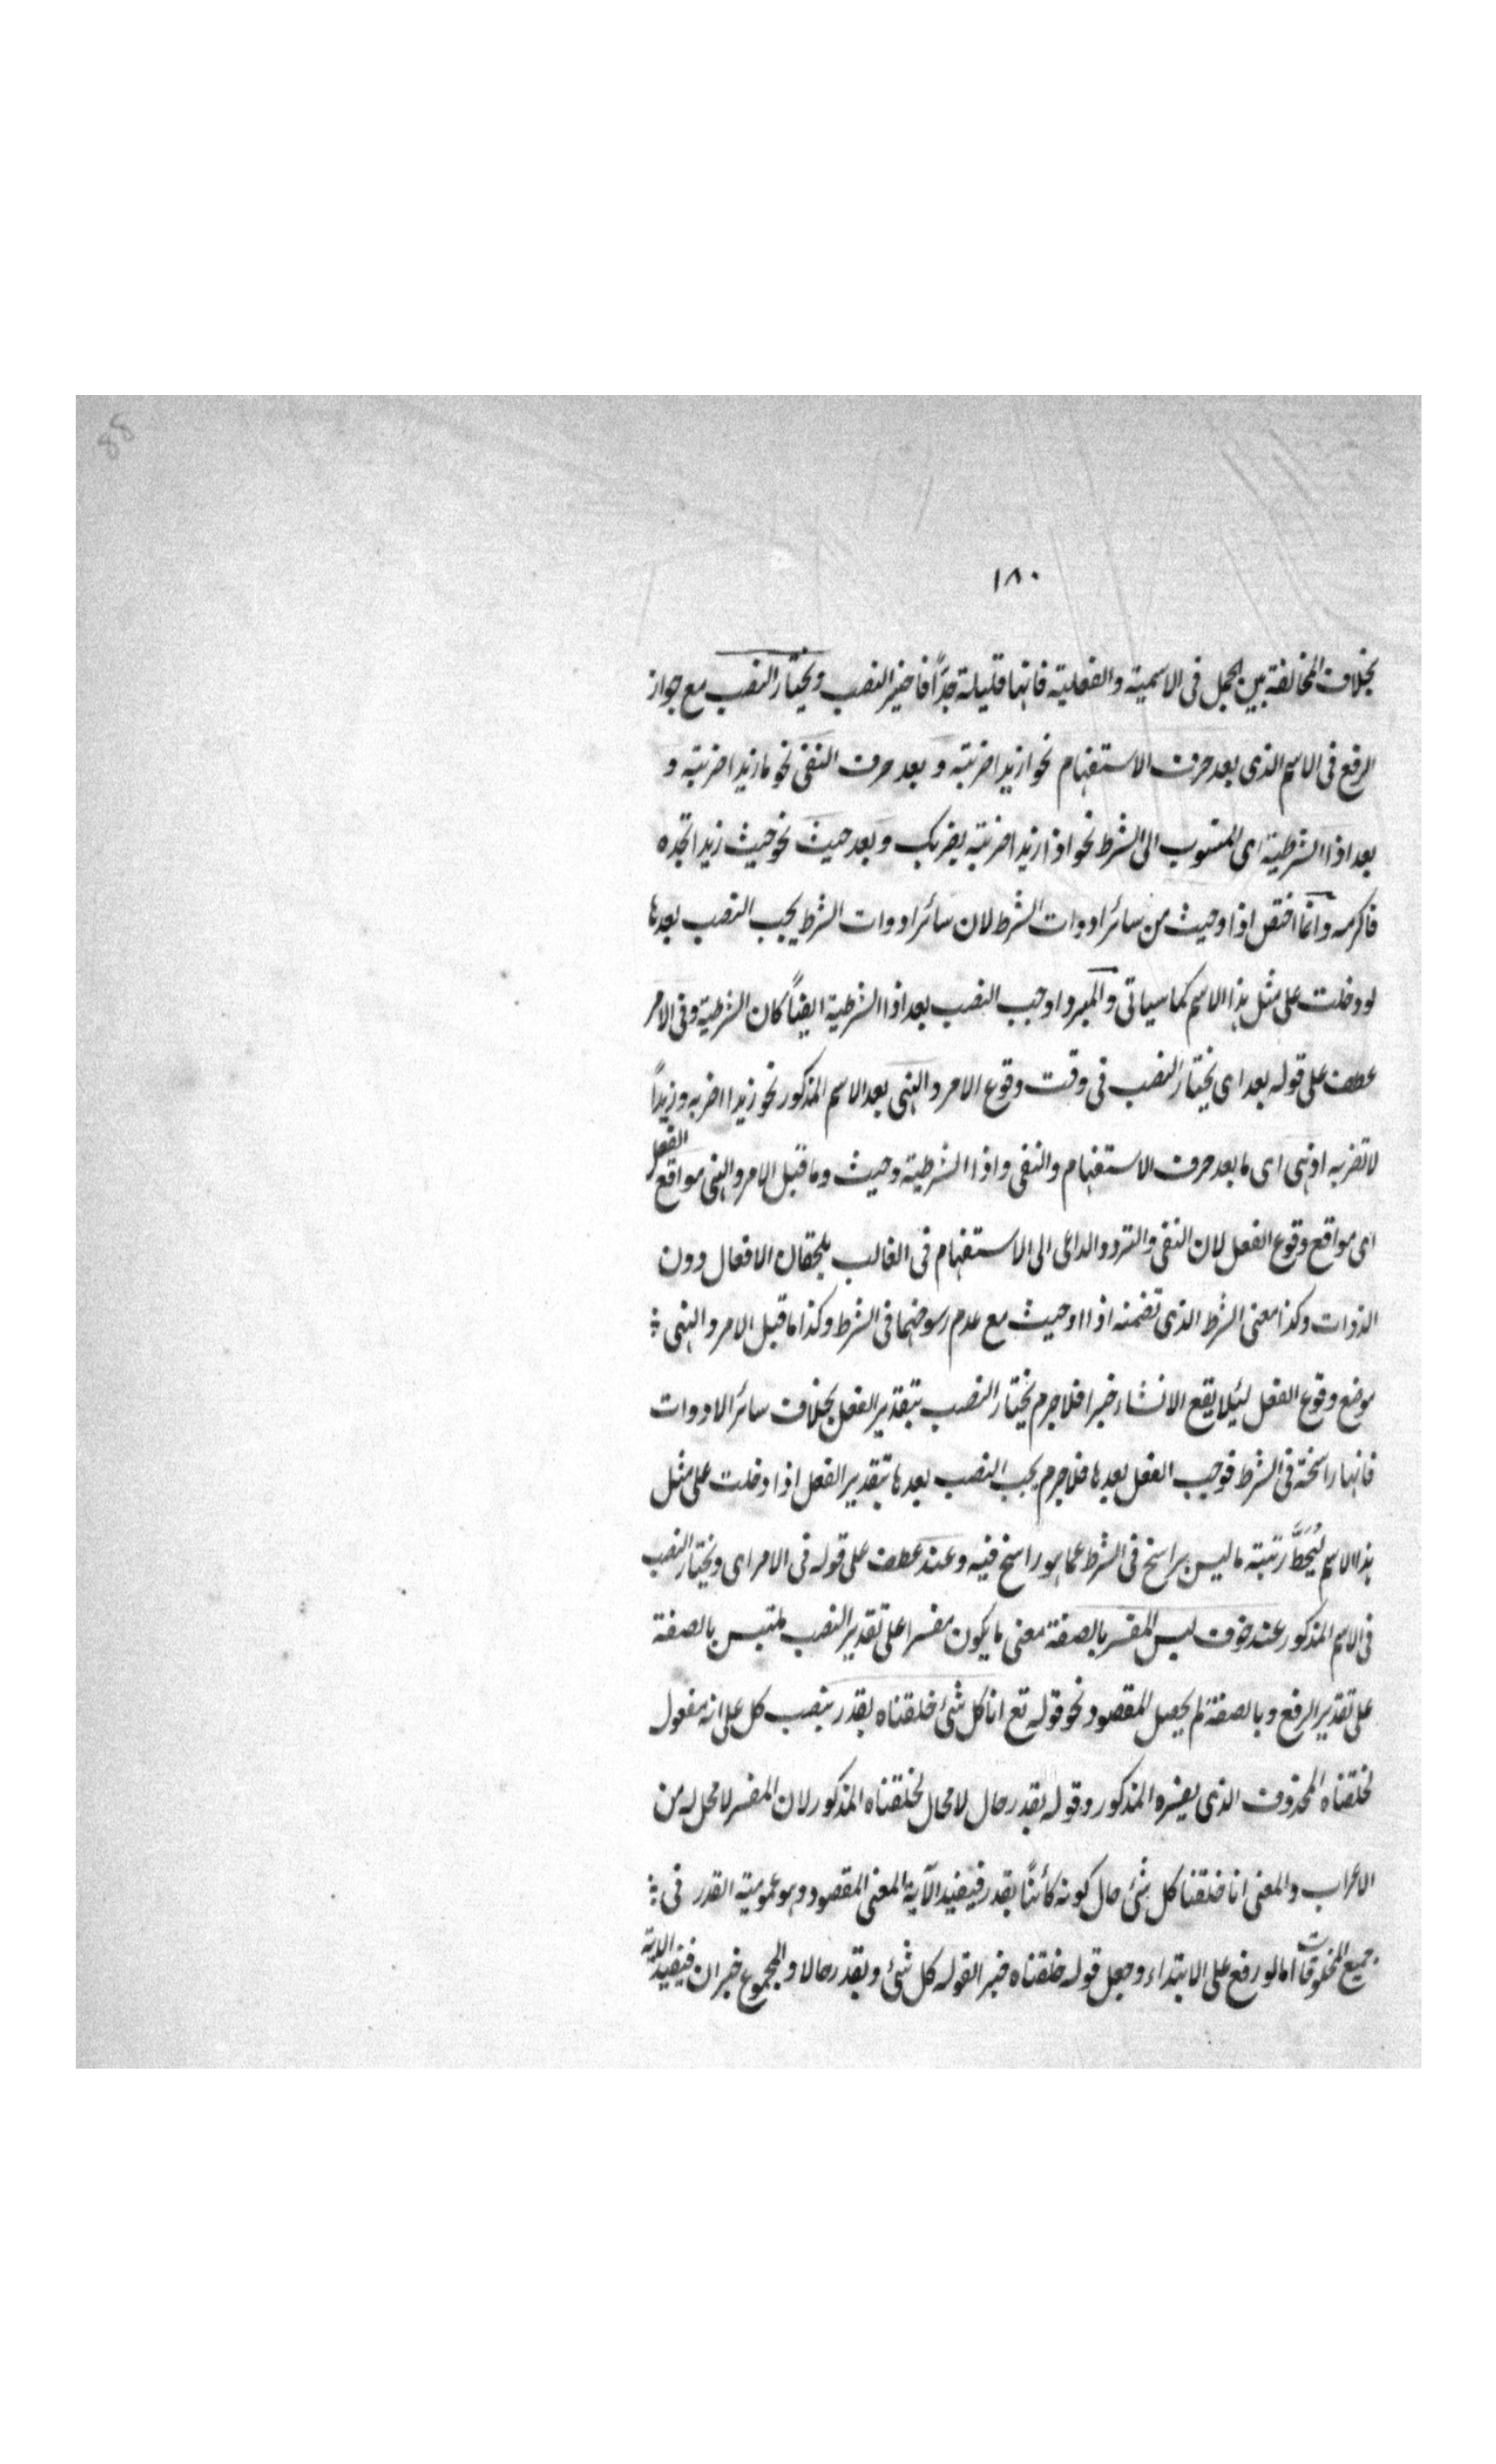 88
١٨٠
بخلاف المخالفة بين الجمل فى الاسمية والفعلية فانها قليلة جدًّا فاختير النصب ويختار النصب مع جواز
الرفع فى الاسم الذى بعد حرف الاستفهام نحو ازيدا ضربته و بعد حرف النفى نحو ما زيدا ضربته و
بعد اذا الشرطية اى المنسوب الى الشرط نحو اذا زيدا ضربته يضربك وبعد حيث نحو حيث زيدا تجده
فاكرمه وانما اختص اذا وحيث من سائر ادوات الشرط لان سائر ادوات الشرط يجب النصب بعدها
لو دخلت على مثل هذا الاسم كما سياتى والمبرد اوجب النصب بعد اذا الشرطية ايضًا كان الشرطية وفى الامر
عطف على قوله بعد اى يختار النصب فى وقت وقوع الامر والنهى بعد الاسم المذكور نحو زيدا اضربه وزيداً
لا تضربه اذ هى اى ما بعد حرف الاستفهام والنفى واذا الشرطية وحيث وما قبل الامر والنهى مواقع الفعل
اى مواقع وقوع الفعل لان النفى والتردد الداعى الى الاستفهام فى الغالب يلحقان الافعال دون
الذوات وكذا معنى الشرط الذى تضمنه اذا وحيث مع عدم رسوخهما فى الشرط وكذا ما قبل الامر والنهى
موضع وقوع الفعل لئلا يقع الانشاء خبرا فلا جرم يختار النصب بتقدير الفعل بخلاف سائر الادوات
فانها راسخة فى الشرط فوجب الفعل بعدها فلا جرم يجب النصب بعدها بتقدير الفعل اذا دخلت على مثل
هذا الاسم ليُحَطَّ رتبته ما ليس براسخ فى الشرط عما هو راسخ فيه وعند عطف على قوله فى الامر اى ويختار النصب
فى الاسم المذكور عند خوف لبس المفسر بالصفة معنى ما يكون مفسرا على تقدير النصب ملتبس بالصفة
على تقدير الرفع وبالصفة لم يحصل المقصود نحو قوله تع انا كل شئ خلقناه بقدر بنصب كل على انه مفعول
لخلقناه المحذوف الذى يفسره المذكور وقوله بقدر حال لا محال لخلقناه المذكور لان المفسر لا محل له من
الاعراب والمعنى انا خلقنا كل شئ حال كونه كائنًا بقدر فيفيد الآية المعنى المقصود وهو عمومية القدر فى
جميع المخلوقات اما لو رفع على الابتداء وجعل قوله خلقناه خبرا لقوله كل شئ وبقدر حالا والمجموع خبر ان فيفيد الاية